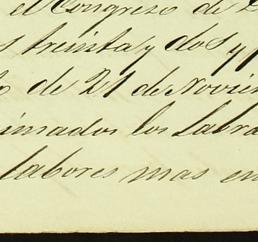 el Congreso de
treinta y dos y
de 21 de Novie
los Labra
labores mas en